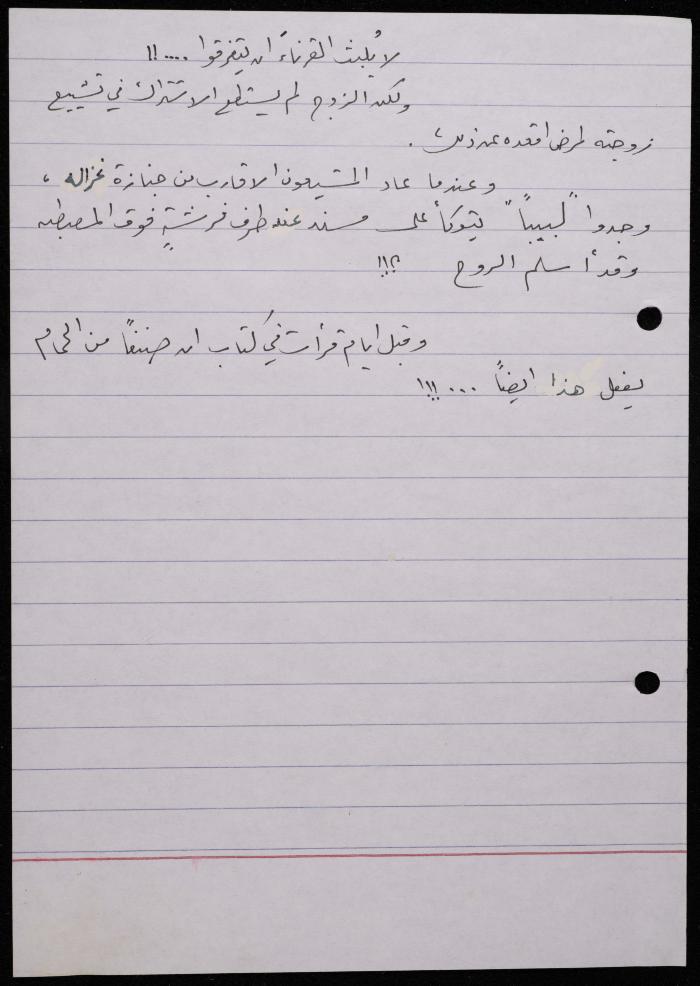 لا يُلبث القرناءَ ان يتفرقوا .... !!
ولكن الزوج لم يستطع الاشتراك في تشييع
زوجته لمرض اقعده عن ذلك .
وعندما عاد المشيعون الاقارب من جنازة غزاله ،
وجدوا "لبيباً" يتوكأ على مسند عند طرف فرشةٍ فوق المصطبه
وقد أسلم الروح ؟!!
وقبل ايام قرأت في كتاب ان صنفاً من الحمام
يفعل هذا ايضاً ... !!!